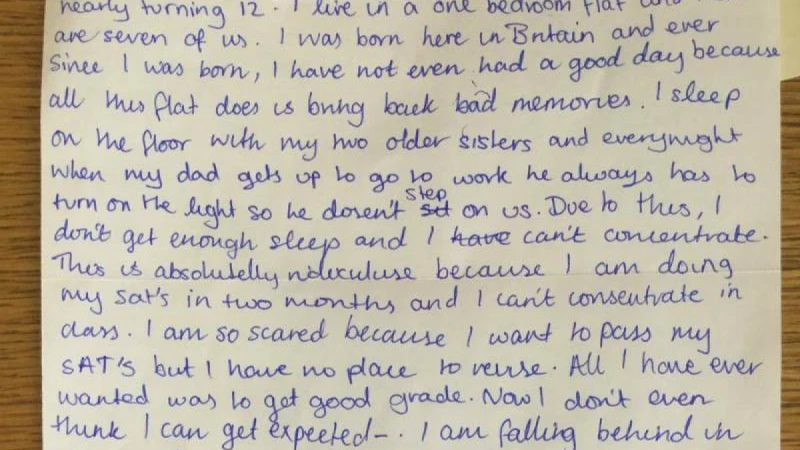 nearly turning 12. I live in a one bedroom flat
are seven of us. I was born here in Britain and ever
since I was born, I have not even had a good day because
all this flat does is bring back bad memories. I sleep
on the floor with my two older sisters and everynight
when my dad gets up to go to work he always has to
turn on the light so he dosen't set step on us. Due to this, I
don't get enough sleep and I have can't concentrate.
This is absolutelly rideculuse because I am doing
my sat's in two months and I can't consentrate in
class. I am so scared because I want to pass my
SAT'S but I have no place to revise. All I have ever
wanted was to get good grade. Now I don't even
think I can get expected-. I am falling behind in